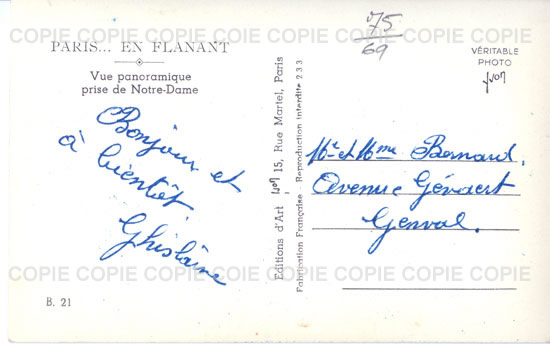 COPIE COPIE COPIE COPIE COPIE COPIE COPIE COPIE
PARIS... EN FLANANT
Vue panoramique
prise de Notre-Dame
Bonjour et
à bientôt
Ghislaine
B. 21
Editions d'Art yvon 15, Rue Martel, Paris
Fabrication Française - Reproduction interdite 233
75
69
VÉRITABLE
PHOTO
yvon
Mr et Mme Bernard.
Avenue Gévaert
Genval.
COPIE COPIE COPIE COPIE COPIE COPIE COPIE COPIE
COPIE COPIE COPIE COPIE COPIE COPIE COPIE COPIE